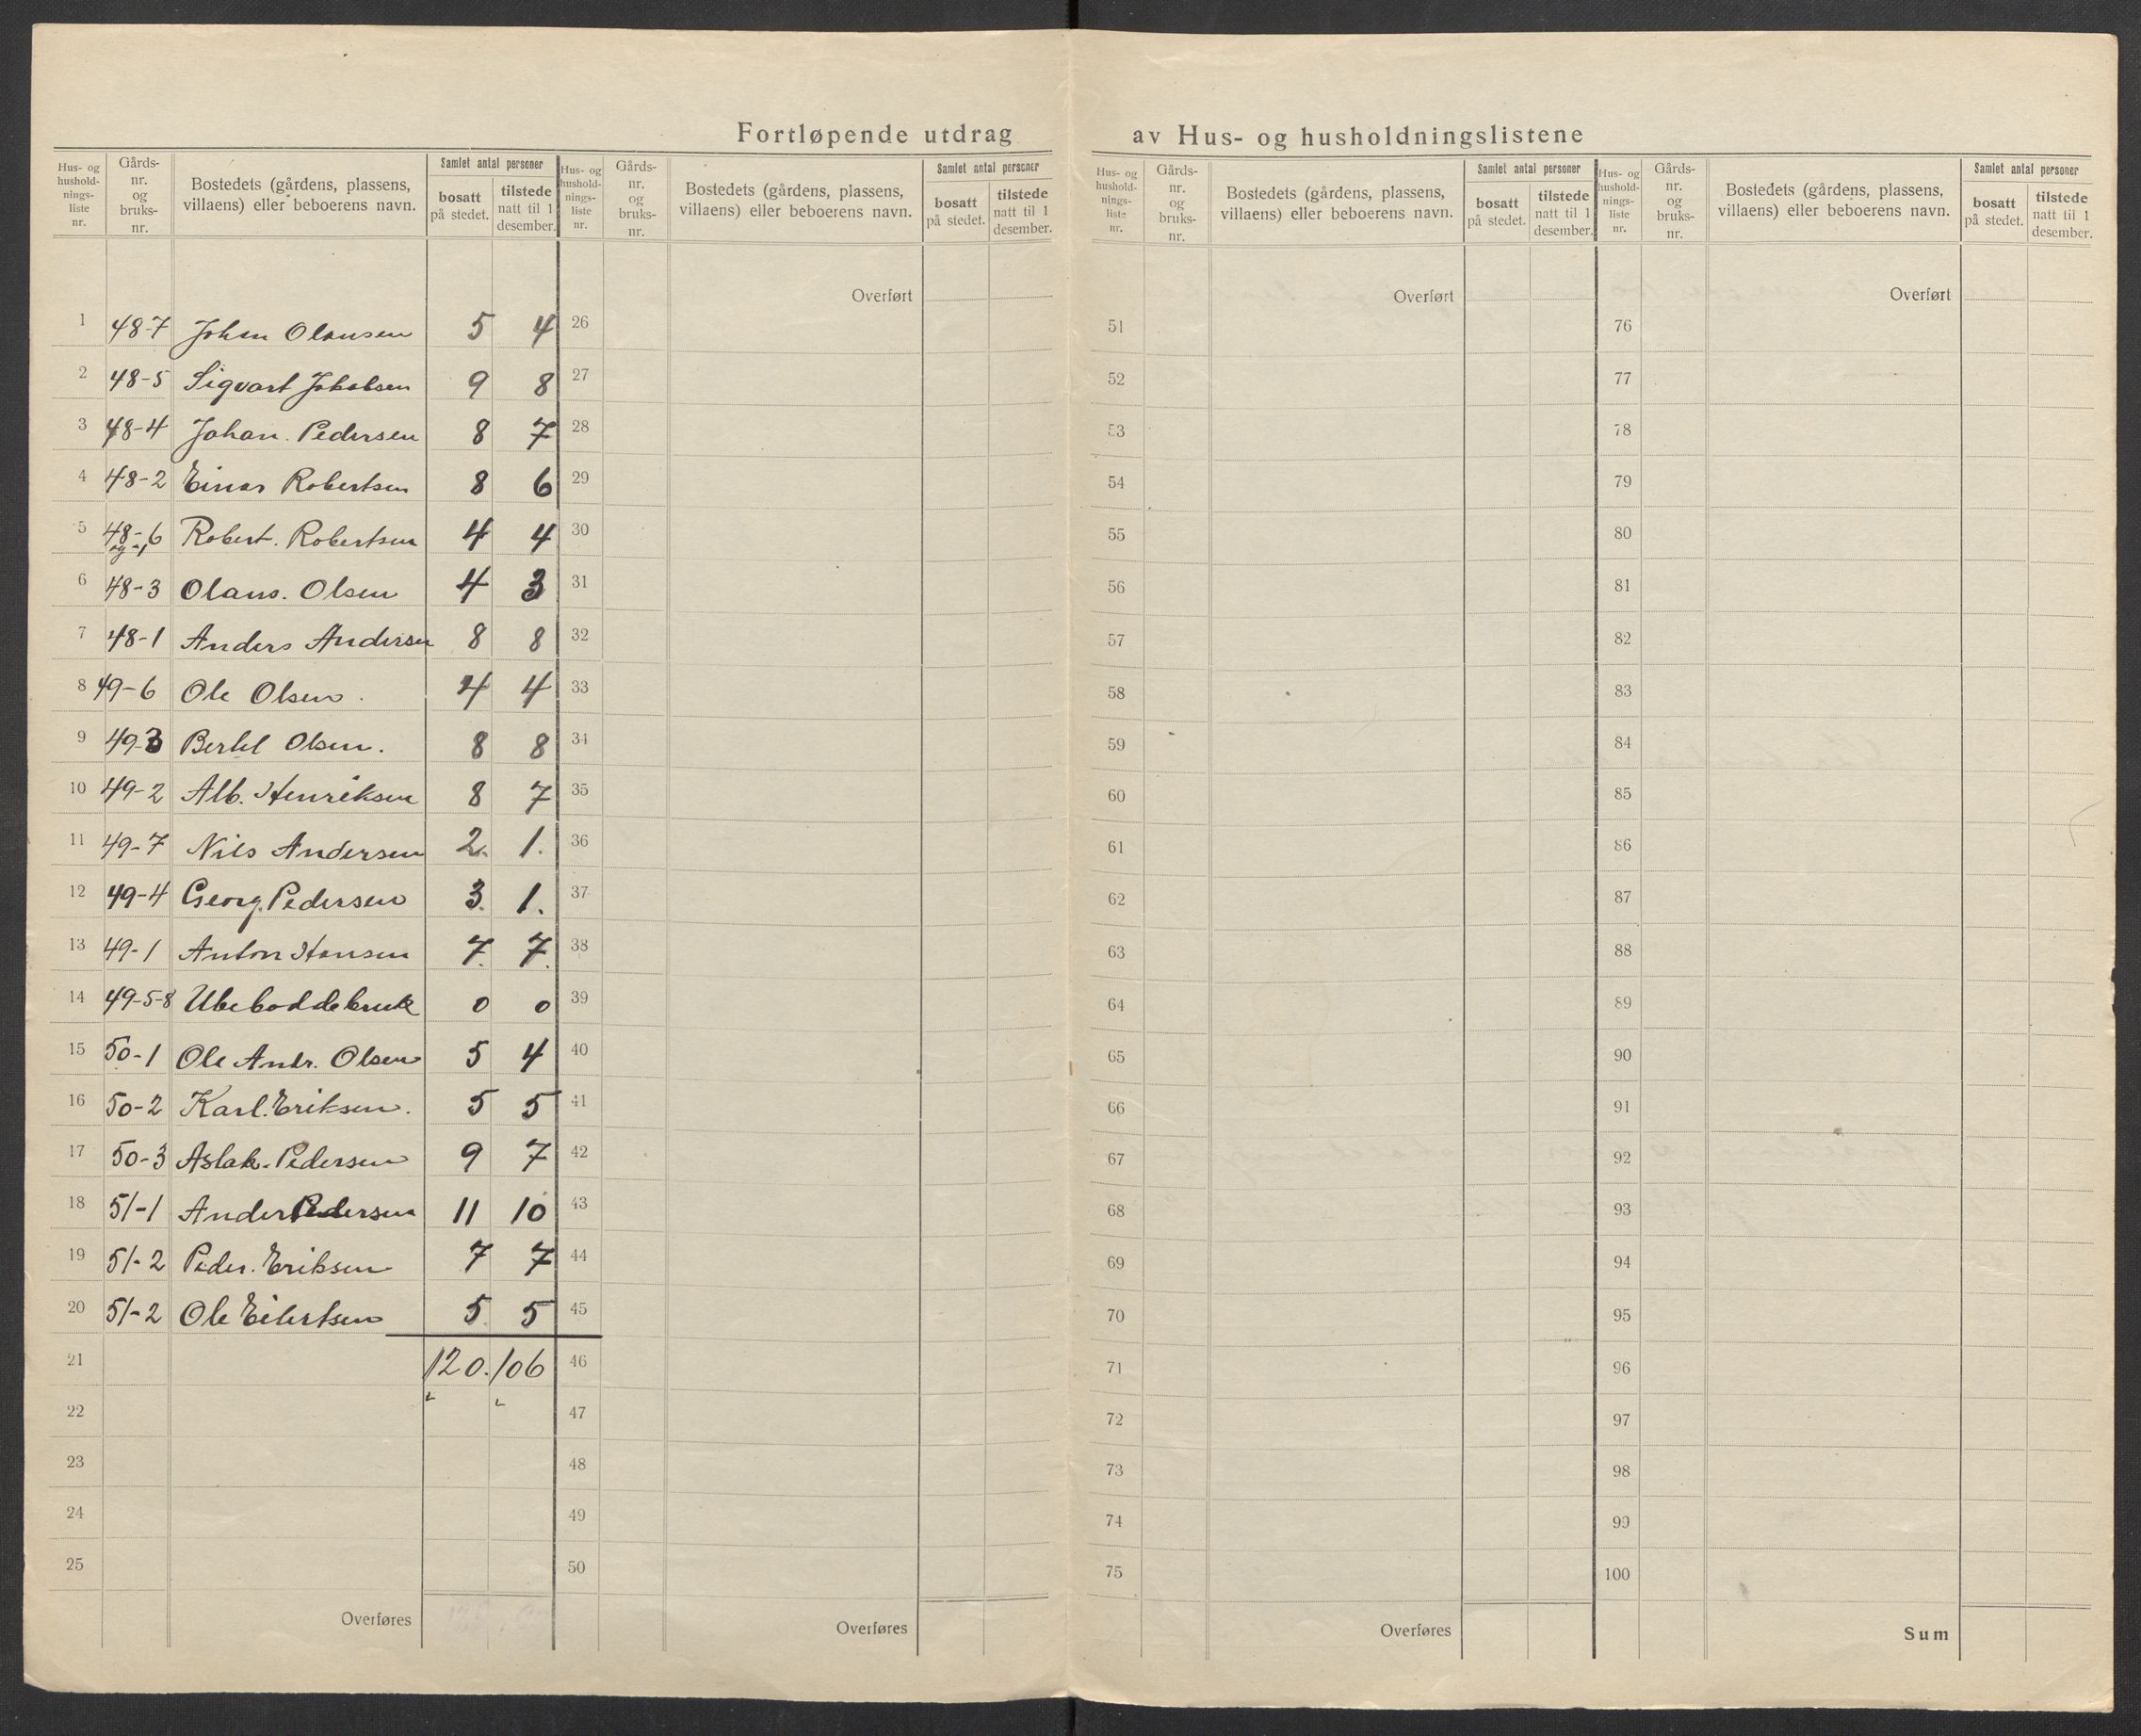 Fortløpende utdrag av Hus- og husholdningslistene
Hus- og husholdnings-liste nr. Gårds-nr. og bruks-nr. Bostedets (gårdens, plassens, villaens) eller beboerens navn. Samlet antal personer bosatt på stedet. tilstede natt til 1 desember.
Hus- og husholdnings-liste nr. Gårds-nr. og bruks-nr. Bostedets (gårdens, plassens, villaens) eller beboerens navn. Samlet antal personer bosatt på stedet. tilstede natt til 1 desember.
Hus- og husholdnings-liste nr. Gårds-nr. og bruks-nr. Bostedets (gårdens, plassens, villaens) eller beboerens navn. Samlet antal personer bosatt på stedet. tilstede natt til 1 desember.
Hus- og husholdnings-liste nr. Gårds-nr. og bruks-nr. Bostedets (gårdens, plassens, villaens) eller beboerens navn. Samlet antal personer bosatt på stedet. tilstede natt til 1 desember.
Overført Overført Overført
1 48-7 Johan Olausen 5 4 26 51 76
2 48-5 Sigvart Jakobsen 9 8 27 52 77
3 48-4 Johan. Pedersen 8 7 28 53 78
4 48-2 Einar Robertsen 8 6 29 54 79
5 48-6 og -1 Robert. Robertsen 4 4 30 55 80
6 48-3 Olaus. Olsen 4 3 31 56 81
7 48-1 Anders Andersen 8 8 32 57 82
8 49-6 Ole Olsen. 4 4 33 58 83
9 49-3 Bertel Olsen. 8 8 34 59 84
10 49-2 Alb. Henriksen 8 7 35 60 85
11 49-7 Nils Andersen 2. 1. 36 61 86
12 49-4 Georg. Pedersen 3. 1. 37 62 87
13 49-1 Anton Hansen 7. 7. 38 63 88
14 49-5-8 Ubebodde bruk 0 0 39 64 89
15 50-1 Ole Andr. Olsen 5 4 40 65 90
16 50-2 Karl. Eriksen. 5 5 41 66 91
17 50-3 Aslak. Pedersen 9 7 42 67 92
18 51-1 Ander Pedersen 11 10 43 68 93
19 51-2 Peder. Eriksen 7 7 44 69 94
20 51-2 Ole Eilertsen 5 5 45 70 95
21 120. 106 46 71 96
22 47 72 97
23 48 73 98
24 49 74 99
25 50 75 100
Overføres Overføres Overføres Sum